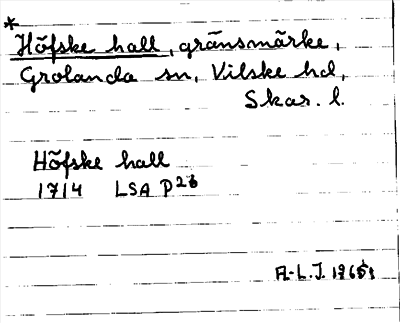 *
Höfske hall, gränsmärke,
Grolanda sn, Vilske hd,
Skar. l.
Höfske hall
1714 LSA P26
A.-L.J. 1965